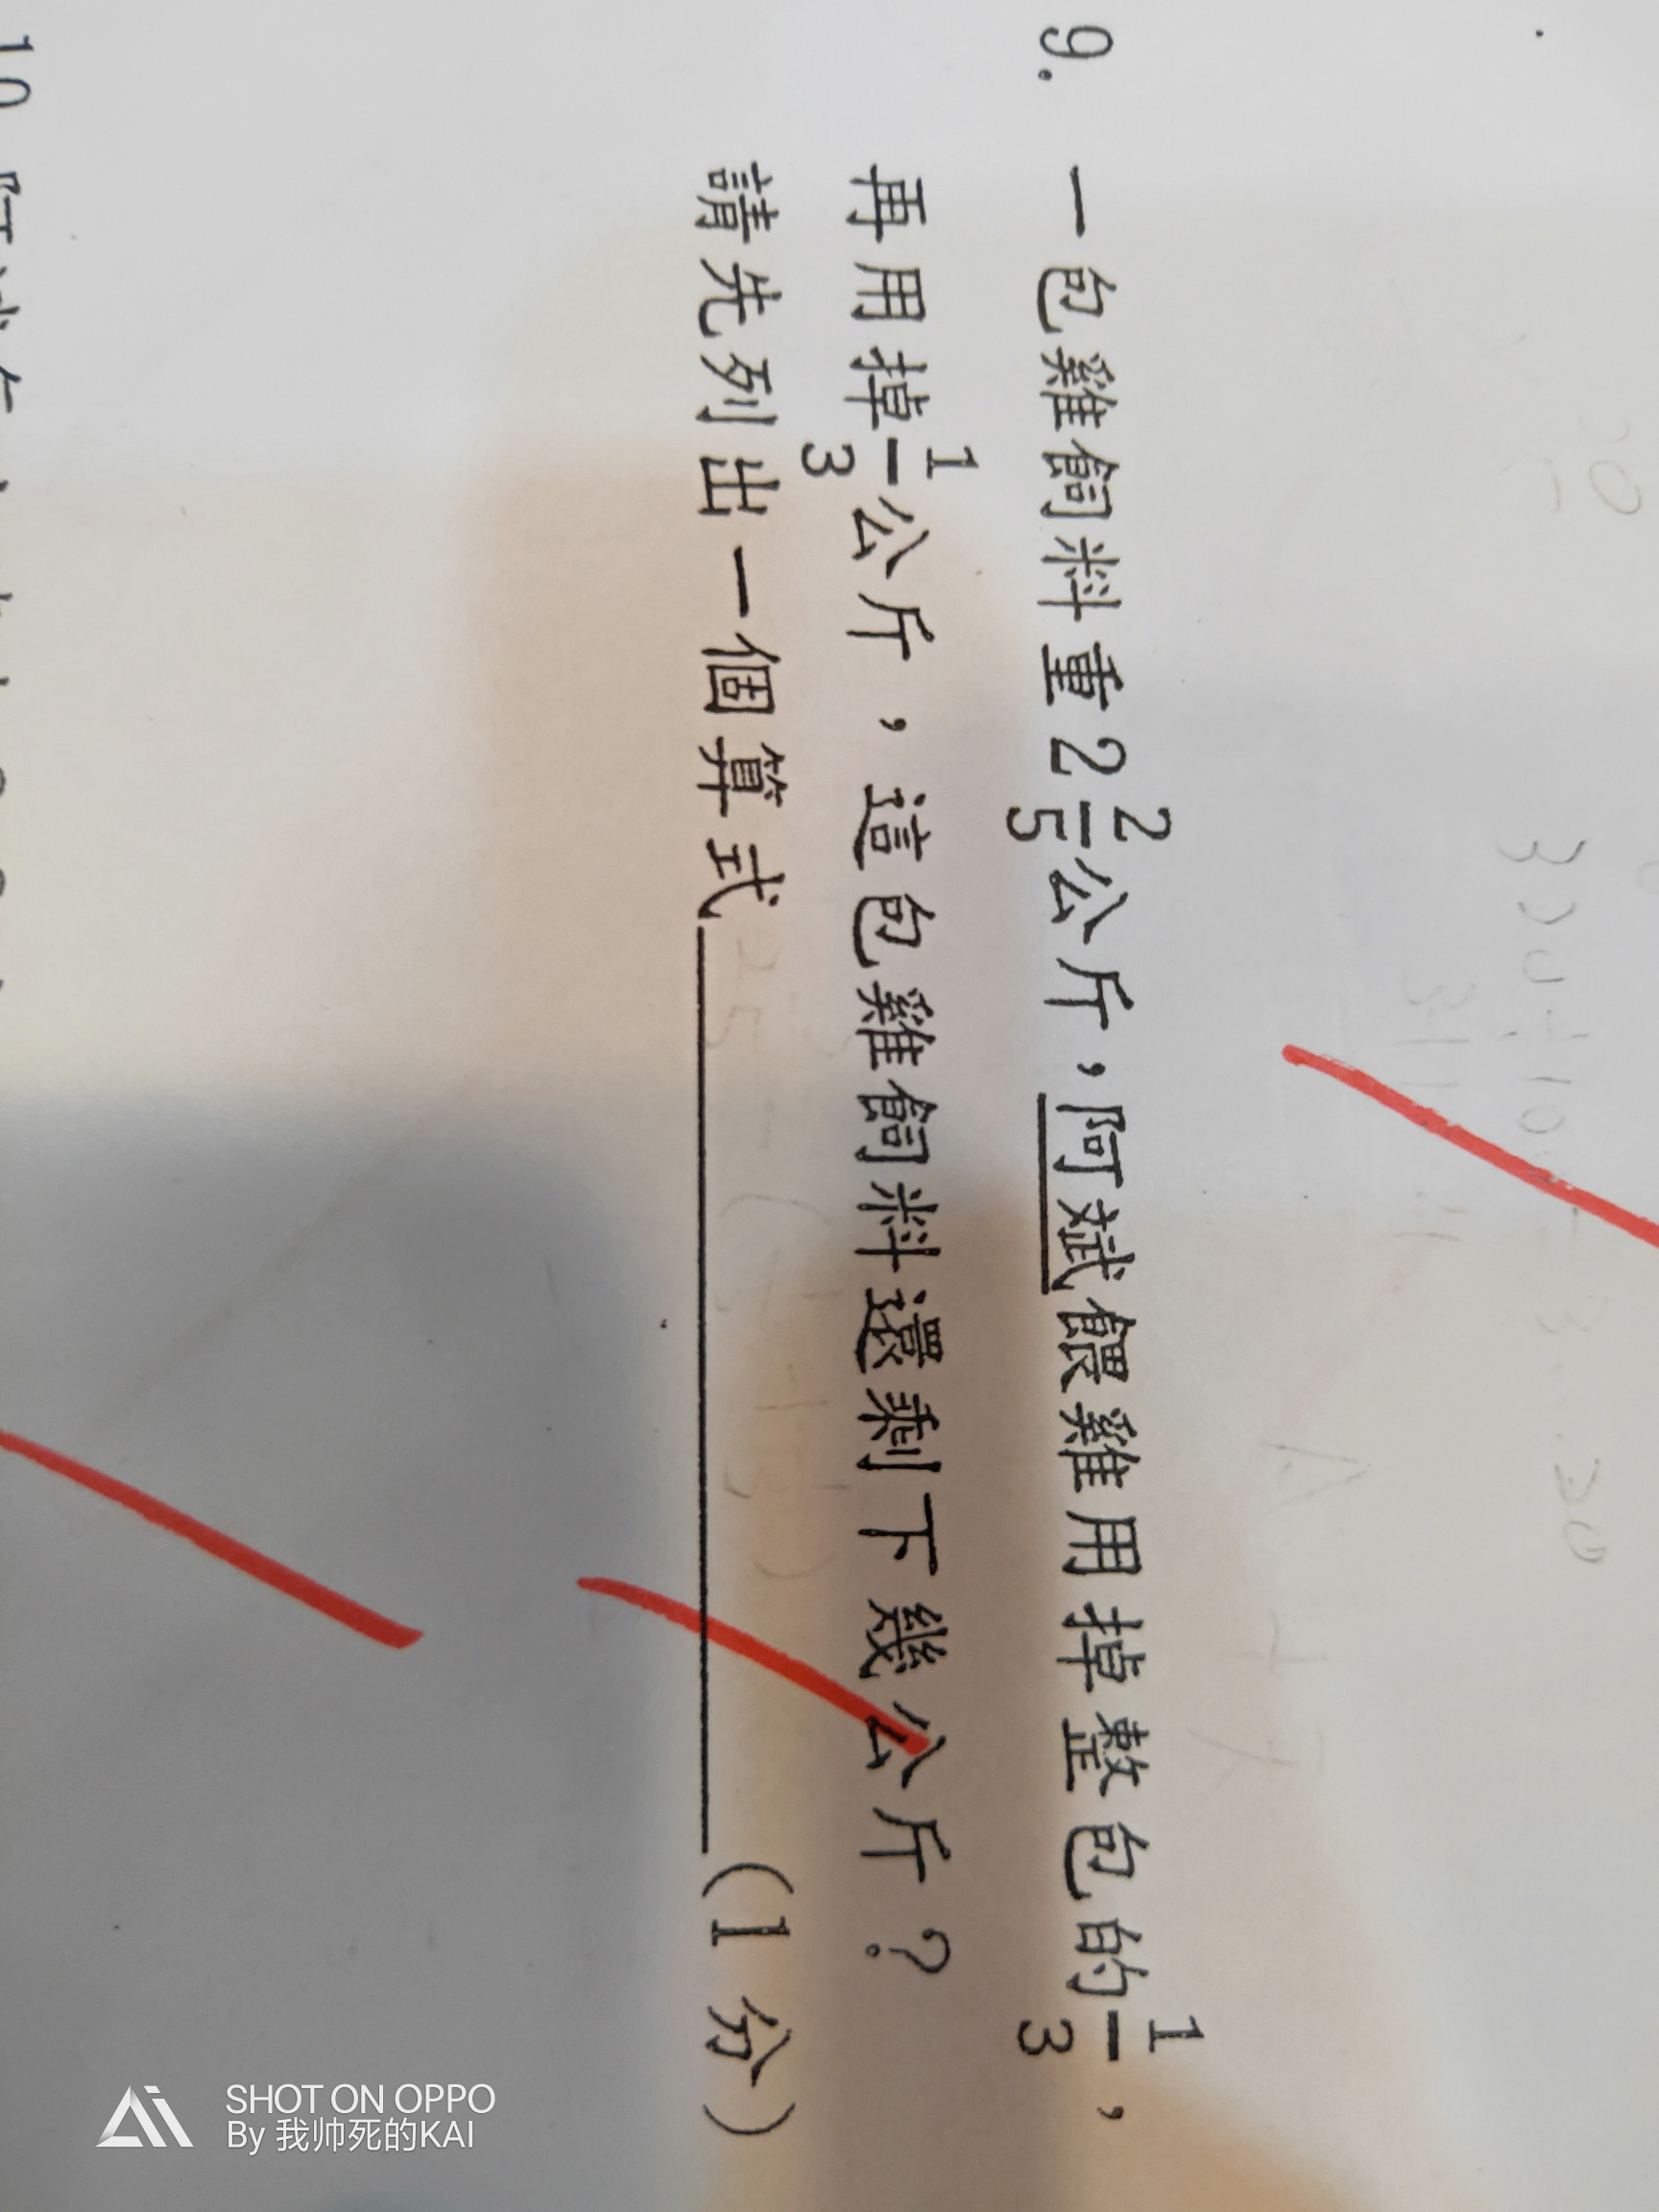 9. 一包雞飼料重2 2/5公斤，阿斌餵雞用掉整包的1/3，
再用掉1/3公斤，這包雞飼料還剩下幾公斤？
請先列出一個算式＿＿＿＿＿＿＿＿＿＿(1分)
10
SHOT ON OPPO
By 我帅死的KAI